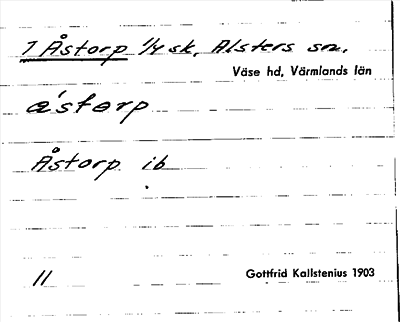 1 Åstorp 1/4 sk, Alsters sn.
Väse hd, Värmlands län
a'storp
Åstorp ib
11
Gottfrid Kallstenius 1903